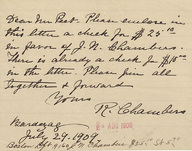 Dear Mr Best. Please enclose in
this letter a check for $25.00
in favor of J. N. Chambers.
There is already a check for $18.00
in the letter. Please pin all
together & forward
Yours
R. Chambers
July 29. 1909
AUG 1909
Chambers